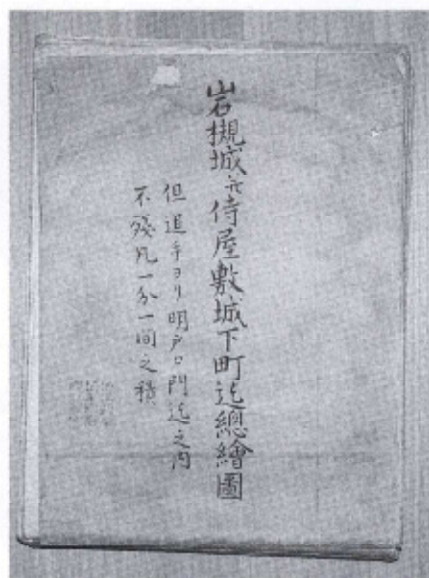 岩槻城并侍屋敷城下町迄總繪圖
但追手ヨリ明戸口門迄之内
不殘凡一分一間之積